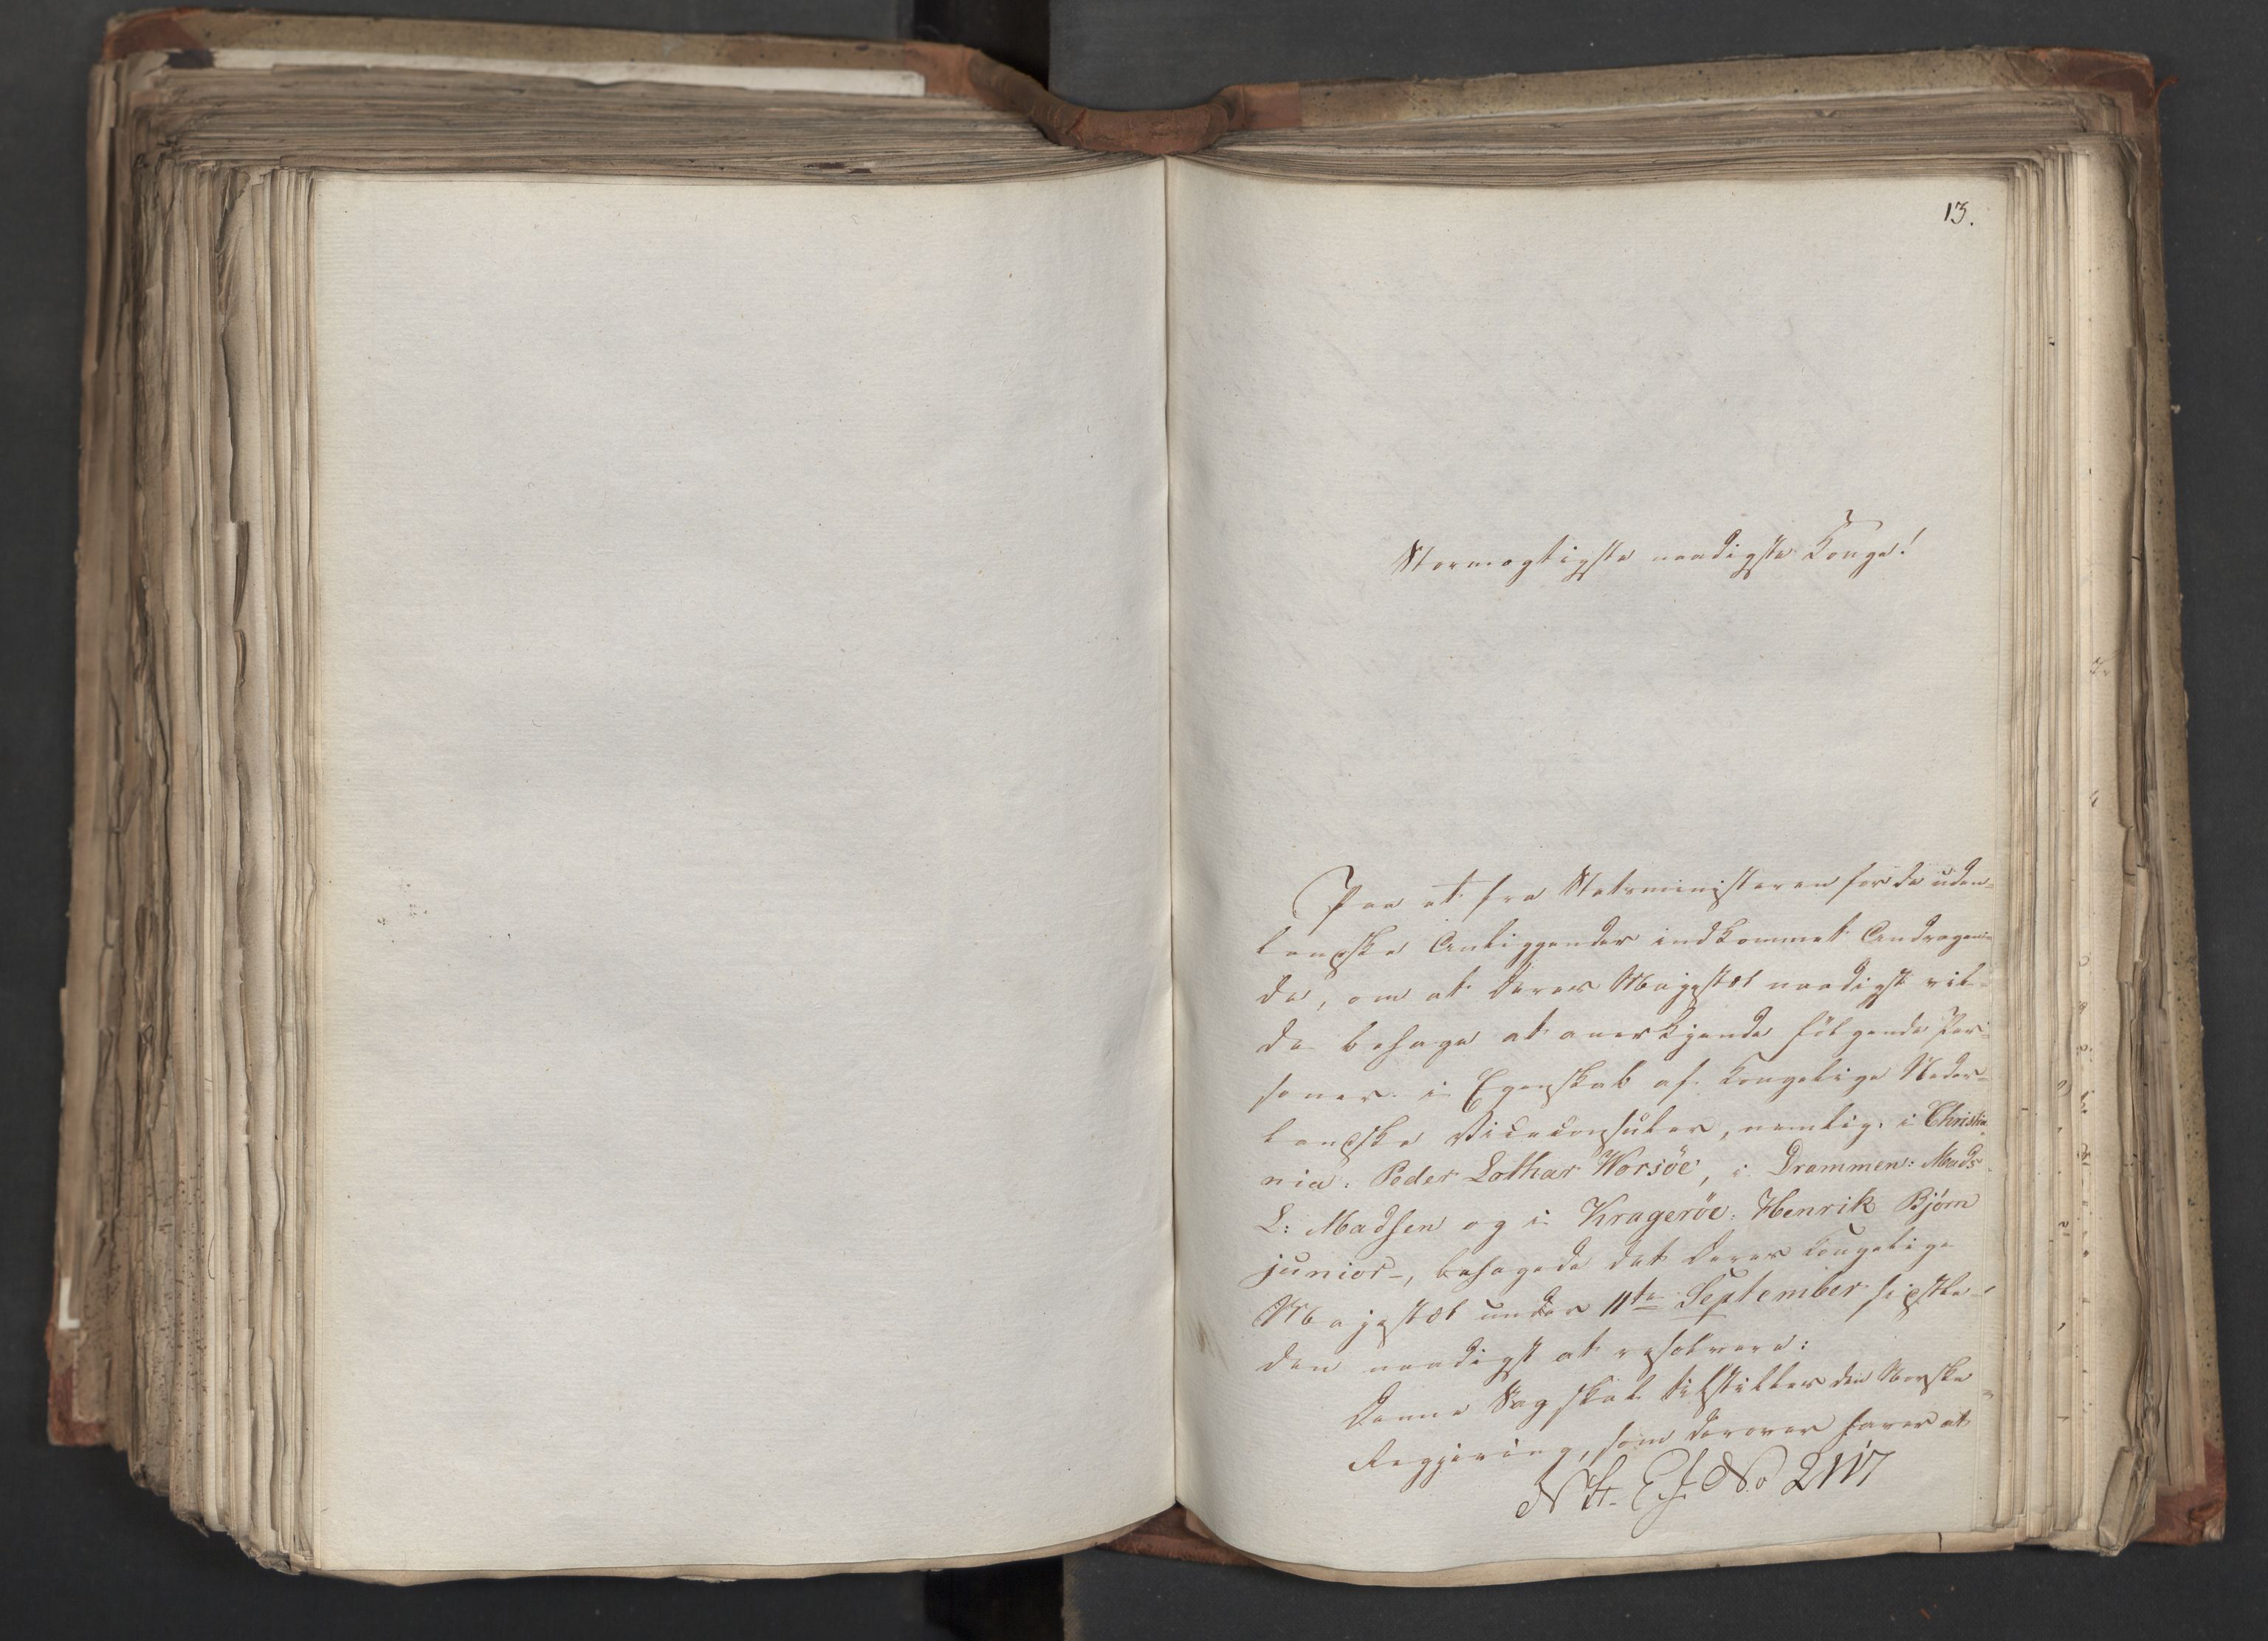 13.
Stormægtigste naadigste Konge!
Paa et fra Statsministeren for de uden-
landske Anliggender indkommet Andragen-
de, om at Deres Majestæt naadigst vil-
de behage at anerkjende følgende Per-
soner i Egenskab af Kongelige Neder-
landske Viceconsuler, nemlig: i Christia-
nia: Peder Lothar Worsöe, i Drammen: Mads
L: Madsen og i Krageröe: Henrik Bjørn
junior-, behagede det Deres Kongelige
Majestæt under 11te September sidstle-
den naadigst at resolvere:
Denne Sag skal tilstilles den Norske
Regjering, som derover haver at
No 2117